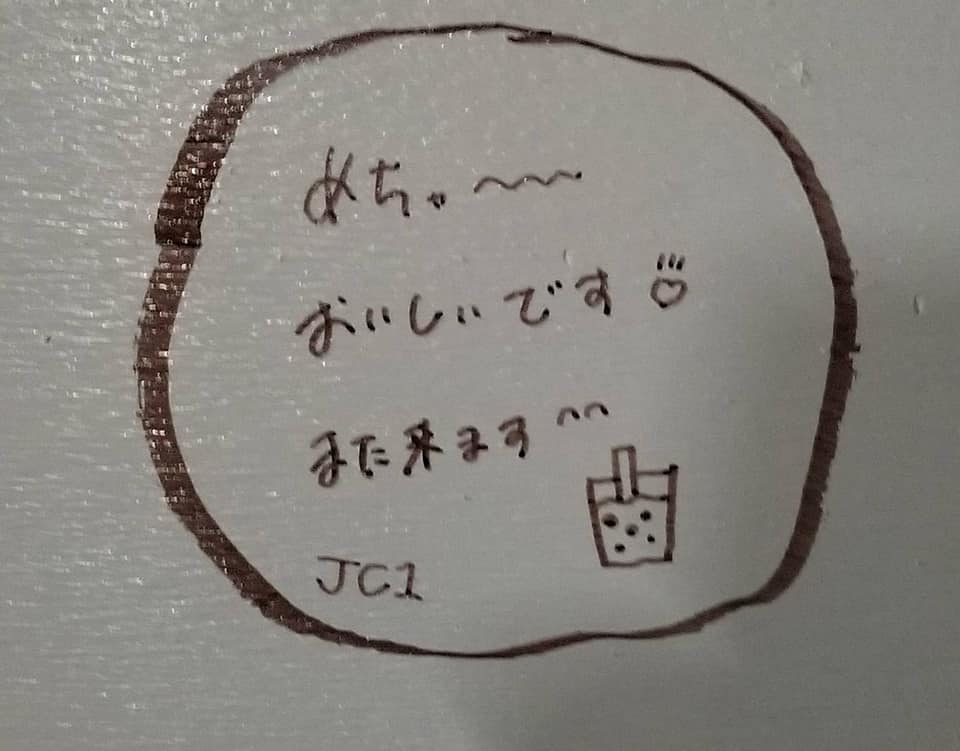 めちゃ〜〜
おいしいです
また来ます^^
JC1